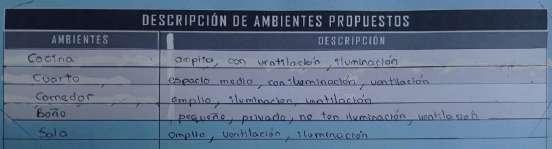 DESCRIPCIÓN DE AMBIENTES PROPUESTOS
AMBIENTES DESCRIPCIÓN
Cocina ampita, con ventilación, iluminación
Cuarto espacio medio, con iluminación, ventilación
Comedor amplio, iluminación, ventilación
Baño pequeño, privado, no ton iluminación, ventilación
Sala amplio, ventilación, iluminación